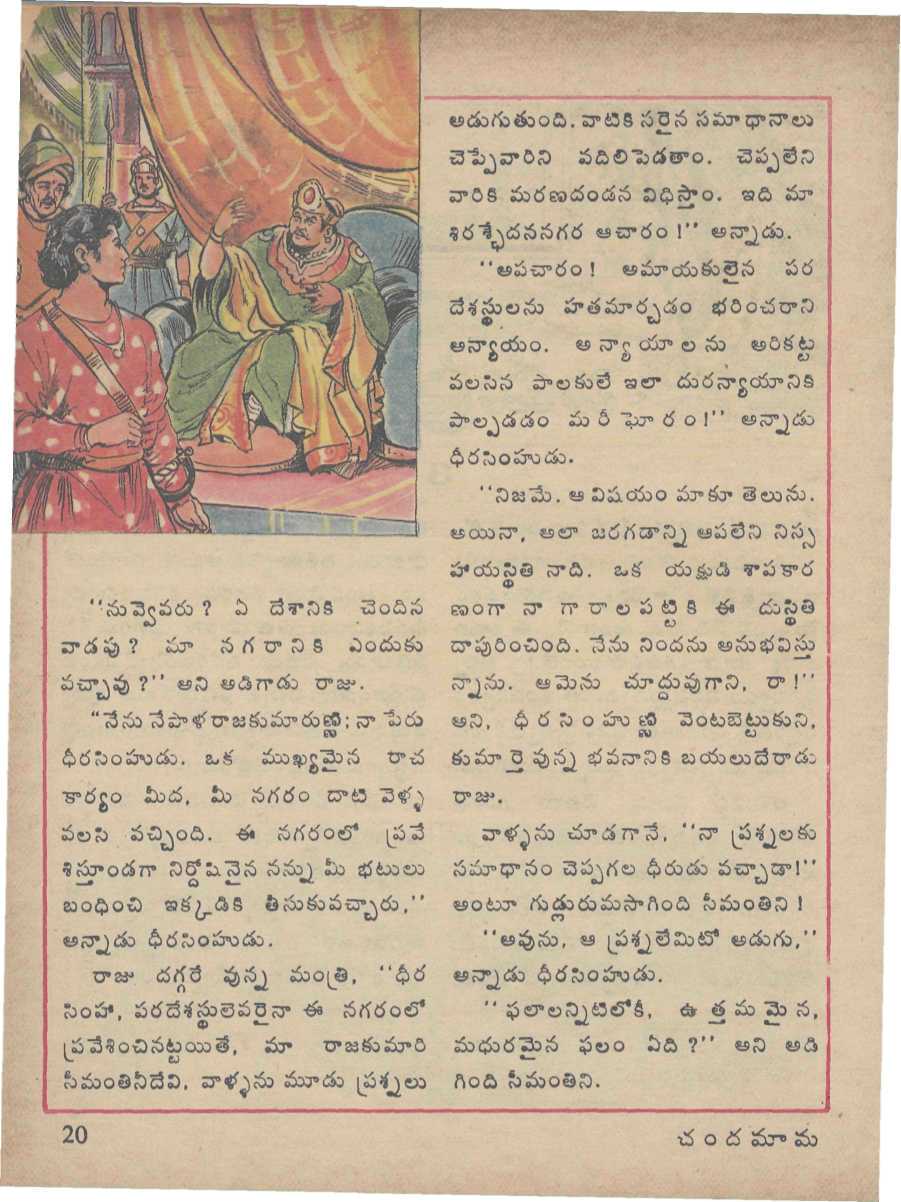 ''నువ్వెవరు ? ఏ దేశానికి చెందిన
వాడవు ? మా నగరానికి ఎందుకు
వచ్చావు ?'' అని అడిగాడు రాజు.
“నేను నేపాళరాజకుమారుణ్ణి; నా పేరు
ధీరసింహుడు. ఒక ముఖ్యమైన రాచ
కార్యం మీద, మీ నగరం దాటి వెళ్ళ
వలసి వచ్చింది. ఈ నగరంలో ప్రవే
శిస్తూండగా నిర్దోషినైన నన్ను మీ భటులు
బంధించి ఇక్కడికి తీసుకువచ్చారు,''
అన్నాడు ధీరసింహుడు.
రాజు దగ్గరే వున్న మంత్రి, ''ధీర
సింహా, పరదేశస్థులెవరైనా ఈ నగరంలో
ప్రవేశించినట్టయితే, మా రాజకుమారి
సీమంతినీదేవి, వాళ్ళను మూడు ప్రశ్నలు
అడుగుతుంది. వాటికి సరైన సమాధానాలు
చెప్పేవారిని వదిలిపెడతాం. చెప్పలేని
వారికి మరణదండన విధిస్తాం. ఇది మా
శిరశ్ఛేదననగర ఆచారం !'' అన్నాడు.
''అపచారం ! అమాయకులైన పర
దేశస్థులను హతమార్చడం భరించరాని
అన్యాయం. అన్యాయాలను అరికట్ట
వలసిన పాలకులే ఇలా దురన్యాయానికి
పాల్పడడం మరీ ఘోరం!'' అన్నాడు
ధీరసింహుడు.
''నిజమే. ఆ విషయం మాకూ తెలును.
అయినా, అలా జరగడాన్ని ఆపలేని నిస్స
హాయస్థితి నాది. ఒక యక్షుడి శాపకార
ణంగా నా గారాలపట్టికి ఈ దుస్థితి
దాపురించింది. నేను నిందను అనుభవిస్తు
న్నాను. ఆమెను చూద్దువుగాని, రా !''
అని, ధీరసింహుణ్ణి వెంటబెట్టుకుని,
కుమార్తె వున్న భవనానికి బయలుదేరాడు
రాజు.
వాళ్ళను చూడగానే, ''నా ప్రశ్నలకు
సమాధానం చెప్పగల ధీరుడు వచ్చాడా!''
అంటూ గుడ్లురుమసాగింది సీమంతిని !
''అవును, ఆ ప్రశ్నలేమిటో అడుగు,''
అన్నాడు ధీరసింహుడు.
''ఫలాలన్నిటిలోకీ, ఉత్తమమైన,
మధురమైన ఫలం ఏది ?'' అని అడి
గింది సీమంతిని.
20
చందమామ